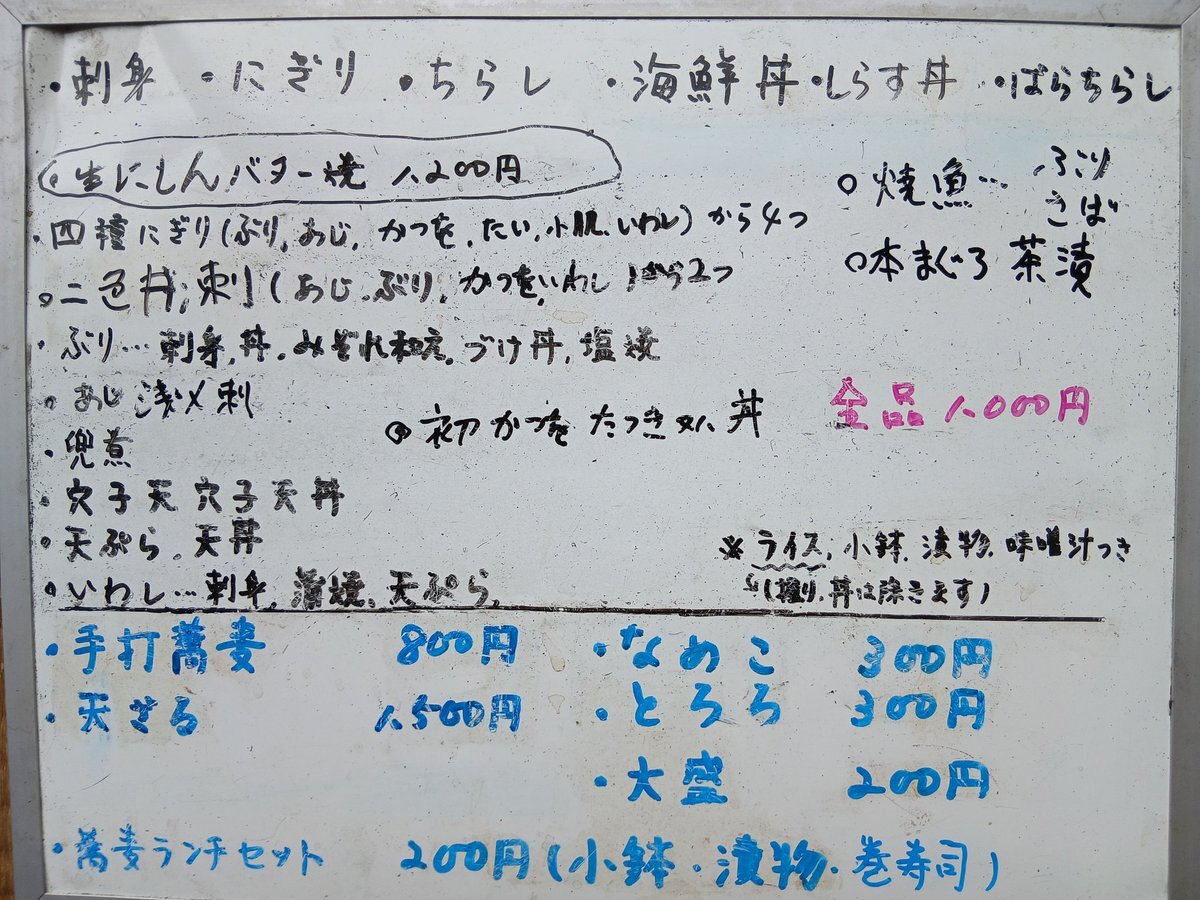 ・刺身 ・にぎり ・ちらし ・海鮮丼 ・しらす丼 ・ばらちらし
○生にしんバター焼 1,200円
・四種にぎり(ぶり,あじ,かつを,たい,小肌,いわし)から4つ
○二色丼,刺(あじ,ぶり,かつを,いわし)から2つ
・ぶり…刺身,丼,みぞれ和え,づけ丼,塩焼
・あじ浅〆刺
・兜煮
・穴子天 穴子天丼
・天ぷら、天丼
・いわし…刺身,蒲焼,天ぷら,
○焼魚… ぶり
さば
○本まぐろ茶漬
◎初かつをたたき 丼
全品 1,000円
※ライス,小鉢,漬物,味噌汁つき
(握り,丼は除きます)
・手打蕎麦 800円
・天ざる 1,500円
・なめこ 300円
・とろろ 300円
・大盛 200円
・蕎麦ランチセット 200円(小鉢・漬物・巻寿司)